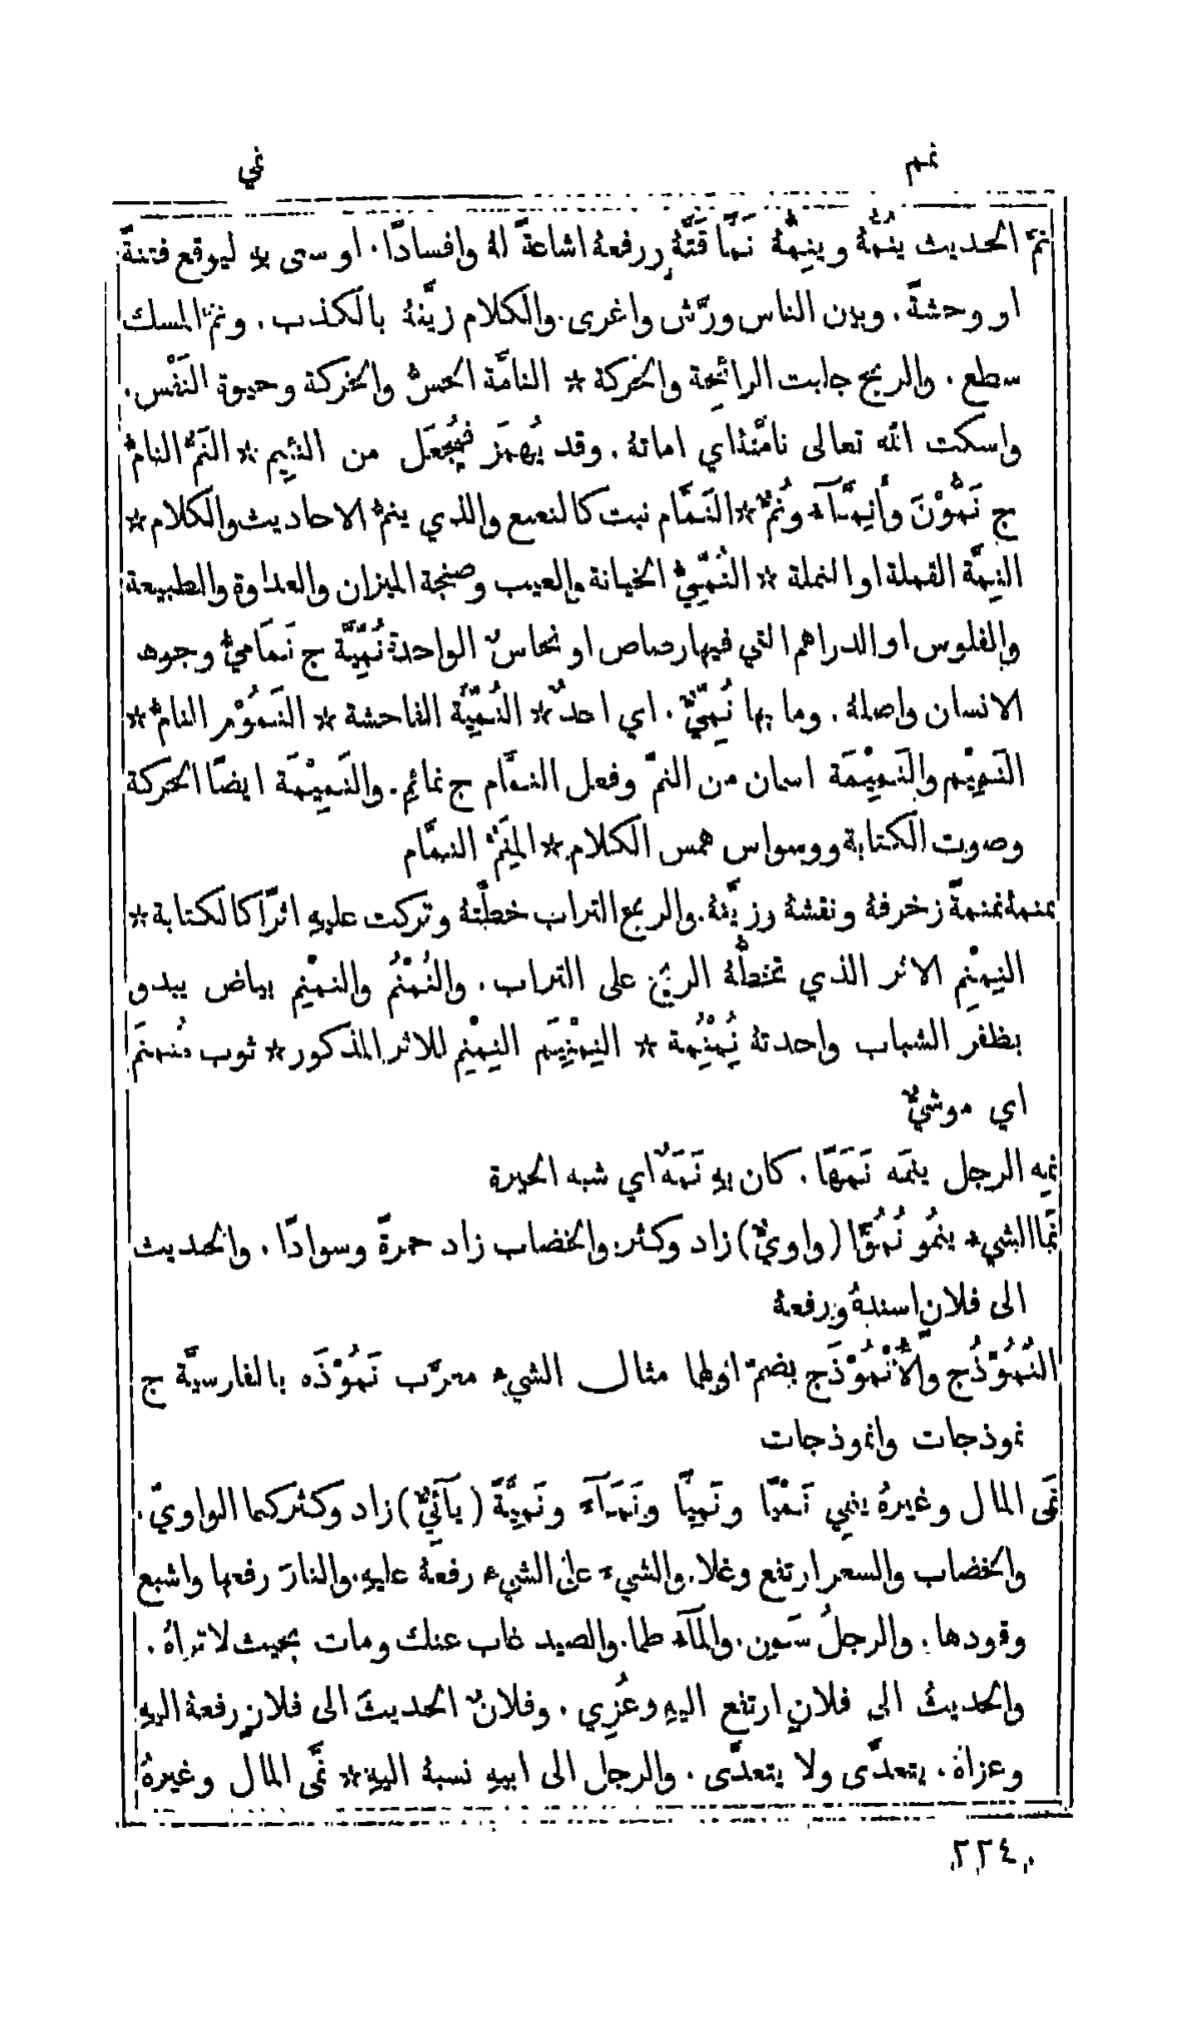 نمم
نمي
نمّ الحديث ينُمُّهُ وينِمُّهُ نَمًّا قَتَّهُ ورفعهُ اشاعةً لهُ وافسادًا. او سعى بهِ ليوقع فتنةً
او وحشةً. وبين الناس ورَّش واغرى. والكلام زيَّنهُ بالكذب. ونمّ المسك
سطع. والريح جابت الرائحة والحركة * النامَّة الحسّ والحركة وحيوة النَفْس.
واسكت الله تعالى نامَّتهُ اي اماتهُ. وقد يُهمَز فيُجعَل من النئِيم * النَمُّ النامُّ
ج نَمُّوْنَ وأَنِمَّآء ونُمٌّ * النَمَّام نبت كالنعنع والذي ينمّ الاحاديث والكلام *
النِمَّة القملة او النملة * النُمِّيُّ الخيانة والعيب وصنجة الميزان والعداوة والطبيعة
والفلوس او الدراهم التي فيها رصاص او نحاسٌ الواحدة نُمِّيَّة ج نَمَامِيُّ وجوهر
الانسان واصلهُ. وما بها نُمِّيٌّ. اي احدٌ * النُمِّيَّة الفاحشة * النَمُوْم النامُّ *
النَمِيْم والنَمِيْمَة اسمان من النمّ وفعل النمَّام ج نمائِم. والنَمِيْمَة ايضًا الحركة
وصوت الكتابة ووسواس همس الكلام * المِنَمُّ النمَّام
نمنمهُ نمنمةً زخرفهُ ونقشهُ وزيَّنهُ. والريح التراب خطَّتهُ وتركت عليهِ اثرًا كالكتابة *
النِمنْمِ الاثر الذي تخطُّهُ الريح على التراب. والنُمْنُمُ والنمْنِم بياض يبدو
بظفر الشباب واحدتهُ نُمْنُِمة * النِمْنِيْم النِمْنِم للاثر المذكور * ثوب مُنمنَم
اي موشيٌّ
نمِه الرجل ينمَه نَمَهًا. كان بهِ نَمَهٌ اي شبه الحيرة
نما الشيء ينمُو نُمُوًّا (واويٌّ) زاد وكثر. والخضاب زاد حمرةً وسوادًا. والحديث
الى فلانٍ اسندهُ ورفعهُ
النُمُوْذَج والأُنْمُوْذَج بضمّ اولهما مثال الشيء معرَّب نَمُوْذَه بالفارسيَّة ج
نموذجات وانموذجات
نمَى المال وغيرهُ ينمِي نَمْيًا ونُمِيًّا ونَمَآء ونَمِيَّةً (يآئِيٌّ) زاد وكثر كما الواويّ.
والخضاب والسعر ارتفع وغلا. والشيء على الشيء رفعهُ عليهِ. والنارَ رفعها واشبع
وقودها. والرجلُ سَمِن. والمآء طما. والصيد غاب عنك ومات بحيث لا تراهُ.
والحديثُ الى فلانٍ ارتفع اليهِ وعُزِي. وفلانٌ الحديثَ الى فلانٍ رفعهُ اليهِ
وعزاهُ. يتعدَّى ولا يتعدَّى. والرجل الى ابيهِ نسبهُ اليهِ * نَمَّى المالَ وغيرهُ
٢٢٤٠